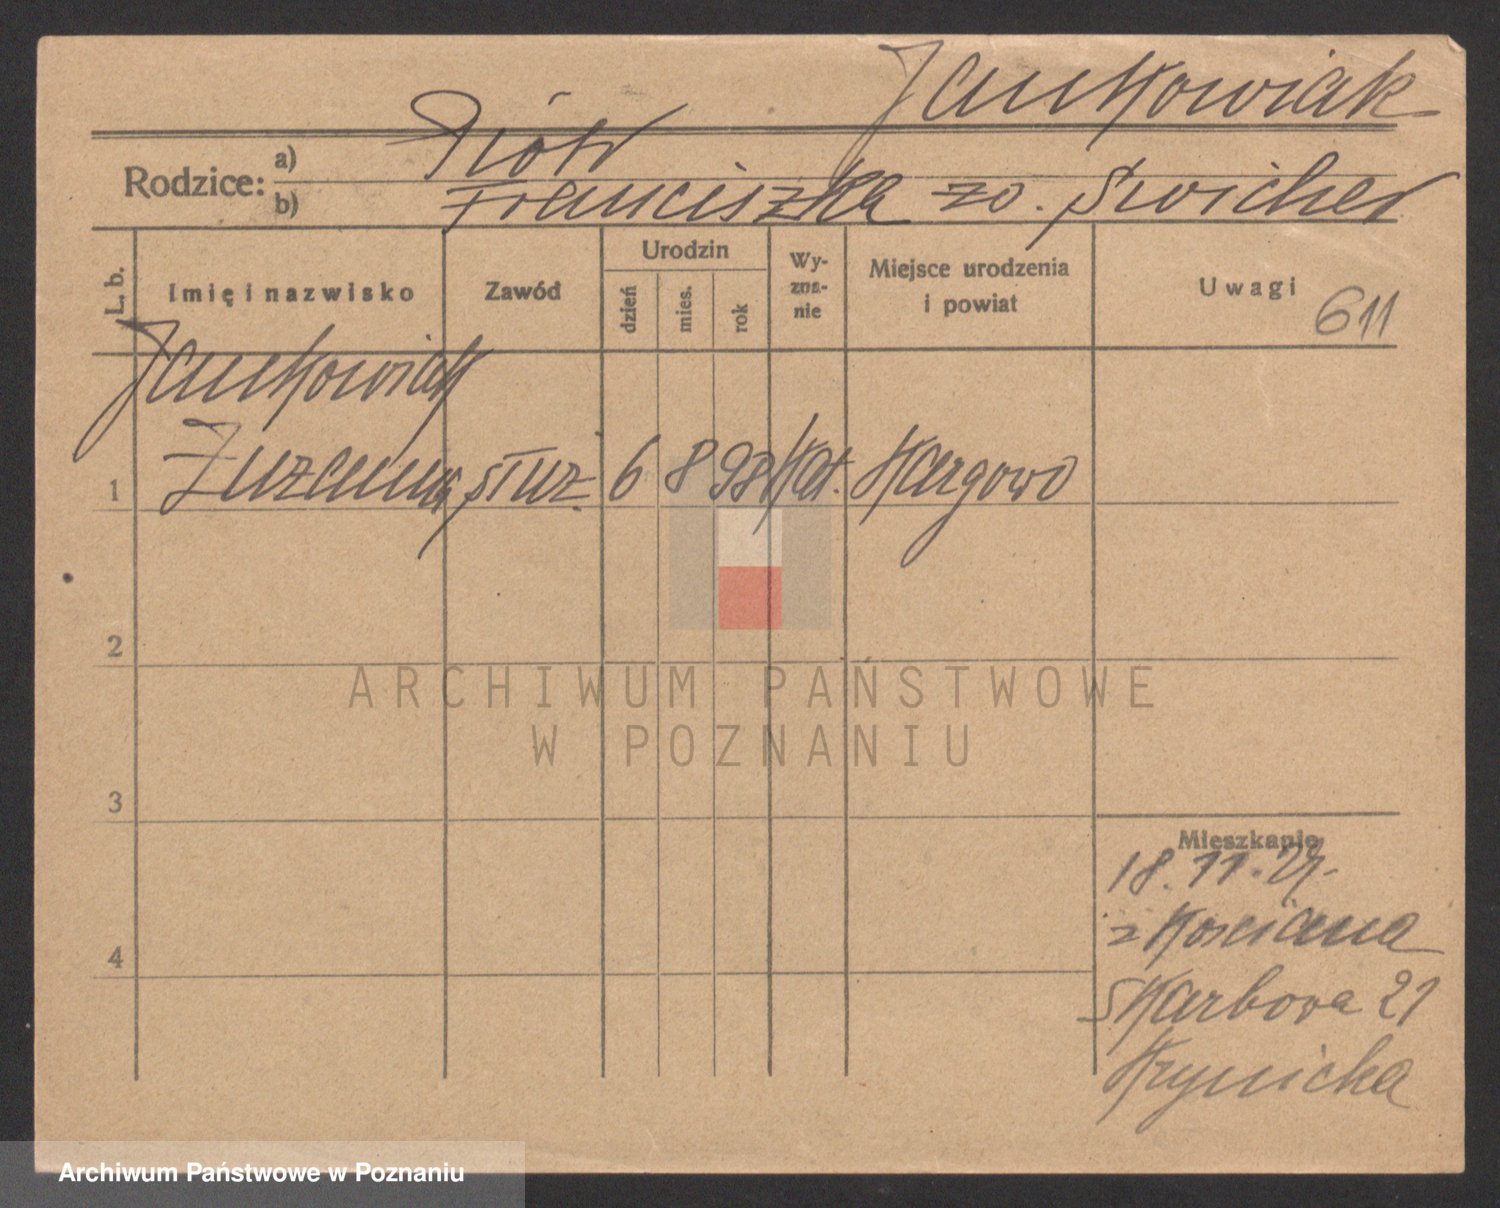 Jankowiak
Rodzice:
a) Piótr
b) Franciszka zd. Świcher
L. b.
Imię i nazwisko
Zawód
Urodzin
dzień
mies.
rok
Wy-
zna-
nie
Miejsce urodzenia
i powiat
Uwagi
611
Jankowiak
1 Zuzanna służ. 6 8 98 kat. Kargowo
2
ARCHIWUM PAŃSTWOWE
W POZNANIU
3
Mieszkanie
18. 11. 27.
z Kościana
4
Skarbowa 21
Krynicka
Archiwum Państwowe w Poznaniu